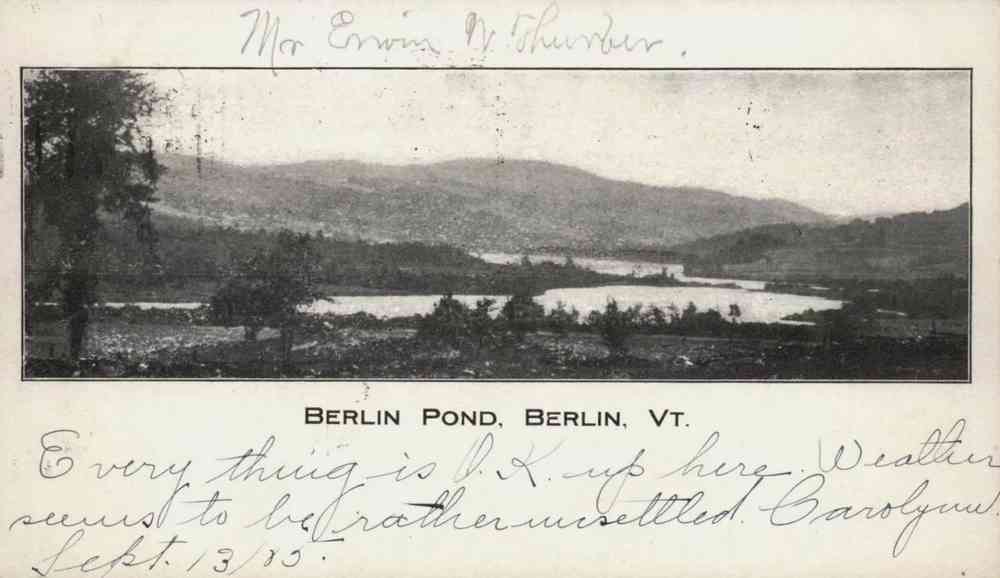 Mr Erwin W. Thurber.
BERLIN POND, BERLIN, VT.
Every thing is O.K. up here. Weather
seems to be rather unsettled. Carolynn.
Sept. 13/05.